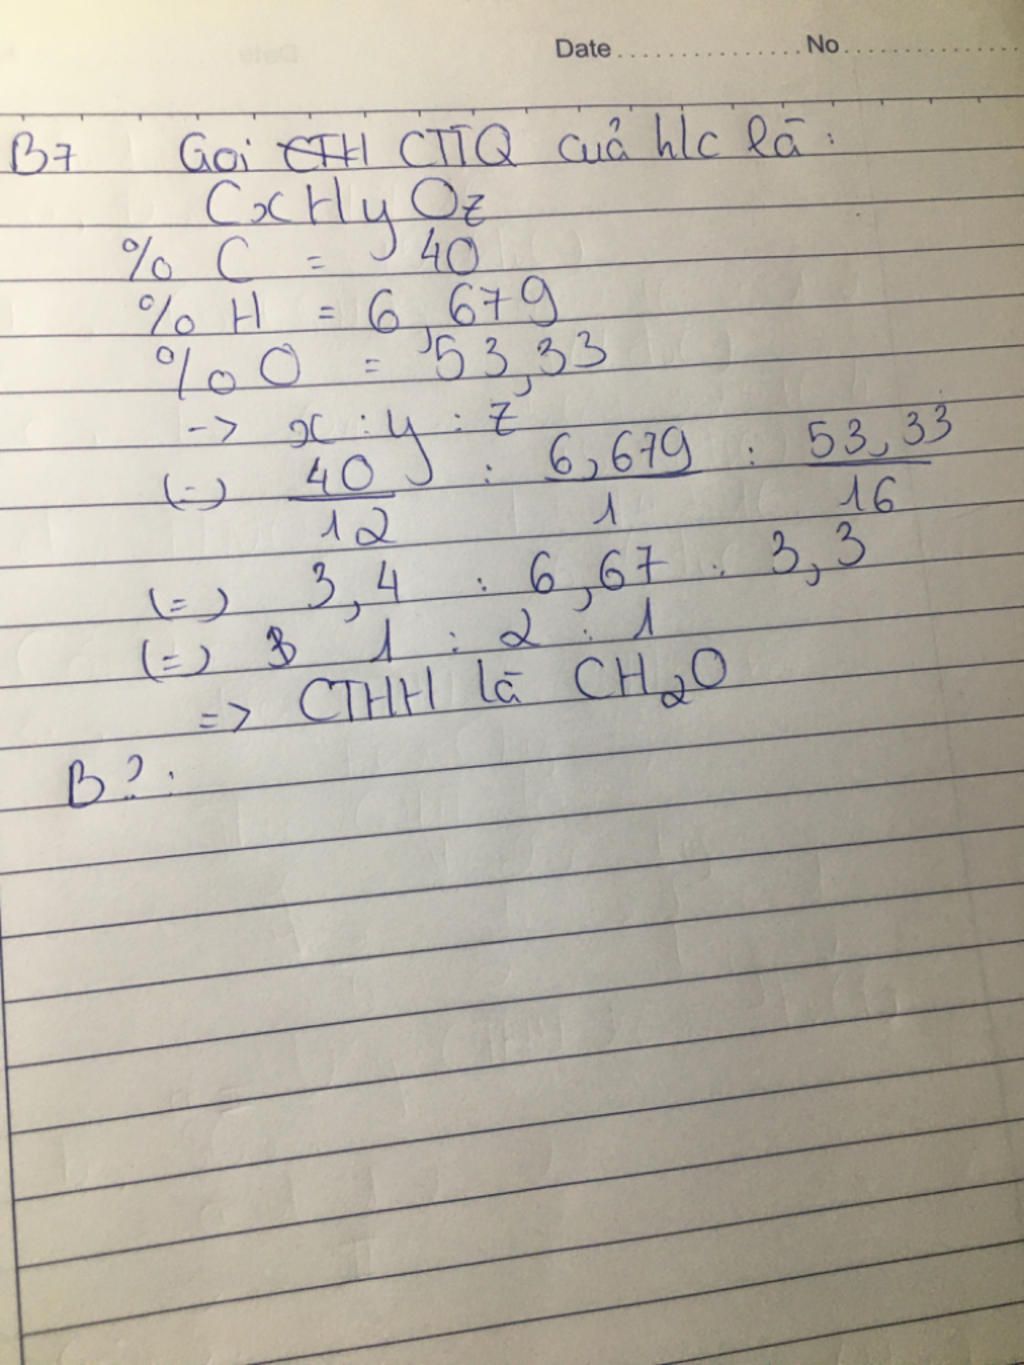 Date............... No...............
B7 Gọi CTH CTTQ cuả h/c là :
CxHyOz
% C = 40
% H = 6,679
% O = 53,33
-> x : y : z
(=) 40/12 : 6,679/1 : 53,33/16
(=) 3,4 : 6,67 : 3,3
(=) 1 : 2 : 1
=> CTHH là CH2O
B? :